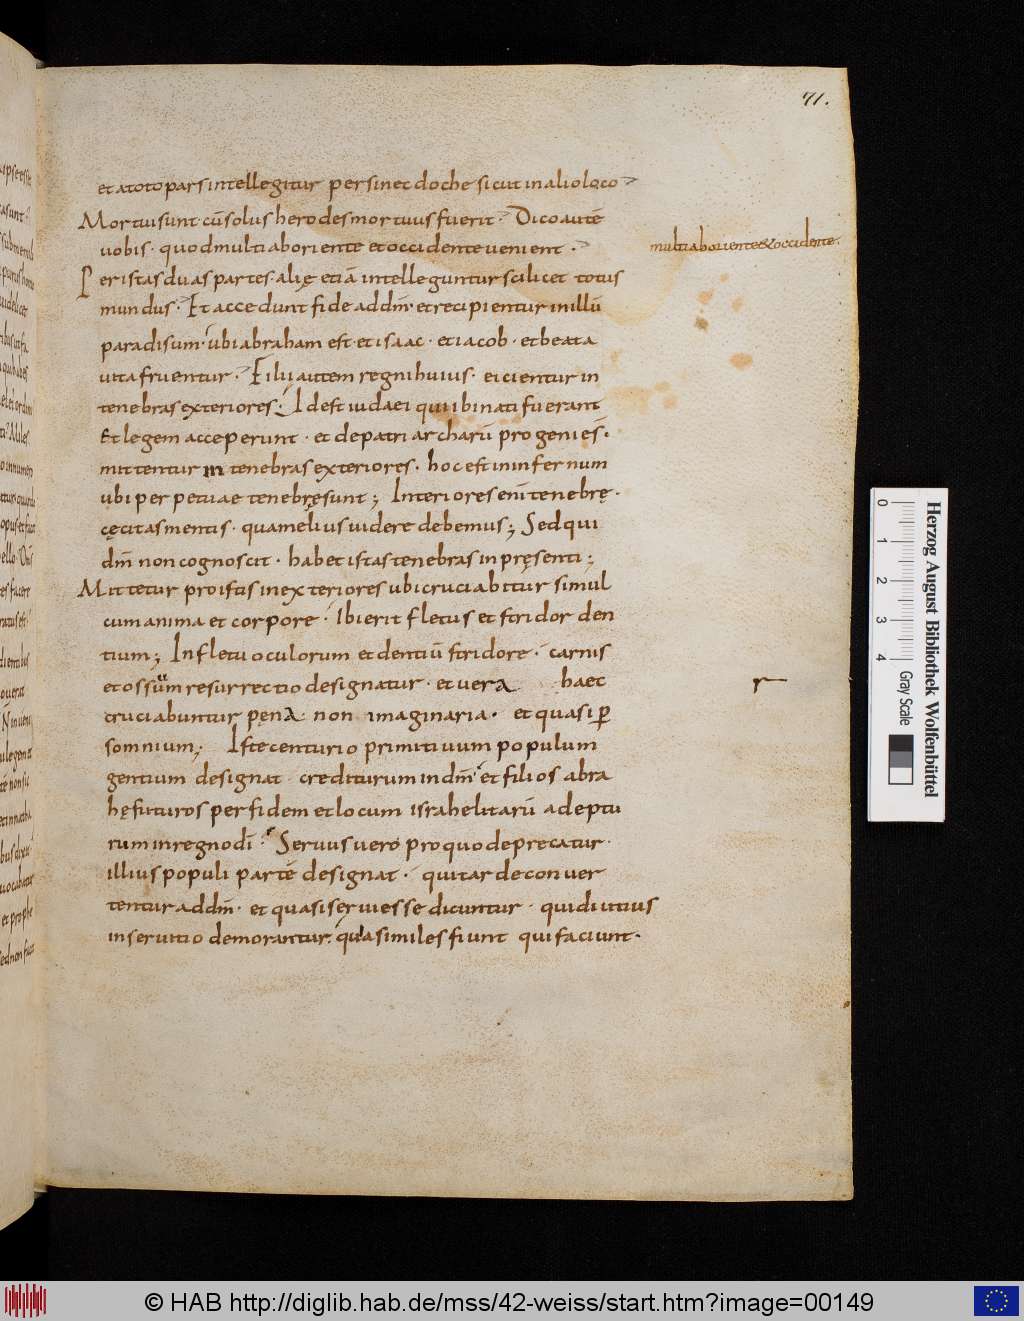 71.
et a toto pars intellegitur per sinecdoche sicut in alio loco
Mortui sunt cū solus herodes mortuus fuerit · Dico autē
uobis · quod multi ab oriente et occidente uenient ·
multi ab oriente & occidente ·
Per istas duas partes · alię etiā intelleguntur scilicet totus
mundus · Et accedunt fide ad dm̄ · et recipientur in illū
paradisum · ubi abraham est · et isaac · et iacob · et beata
uita fruentur · Filii autem regni huius · eicientur in
tenebras exteriores ; Id est iudaei qui ibi nati fuerant
Et legem acceperunt · et de patriarcharū progenies ·
mittentur in tenebras exteriores · hoc est in infernum
ubi perpetuae tenebrę sunt ; Interiores eni tenebrę ·
cęcitas mentis · quam elius uidere debemus ; Sed qui
dm̄ non cognoscit · habet istas tenebras in pręsenti ;
Mittetur pro istis in exteriores ubi cruciabitur simul
cum anima et corpore · Ibi erit fletus et stridor den
tium ; In fletu oculorum et dentiū stridore · carnis
et ossuum resurrectio designatur · et uera haec
r
cruciabuntur pena non imaginaria · et quasi ꝑ
somnium ; Iste centurio primitiuum populum
gentium designat · crediturum in dm̄ et filios abra
hę futuros per fidem et locum israhelitarū adeptu
rum in regno di · Seruus uero pro quo deprecatur ·
illius populi partē designat · qui tarde conuer
tentur ad dm̄ · et quasi seruì esse dicuntur · qui diutius
in seruitio demorantur · quia similes fiunt qui faciunt ·
Herzog August Bibliothek Wolfenbüttel
0 1 2 3 4
Gray Scale
© HAB http://diglib.hab.de/mss/42-weiss/start.htm?image=00149